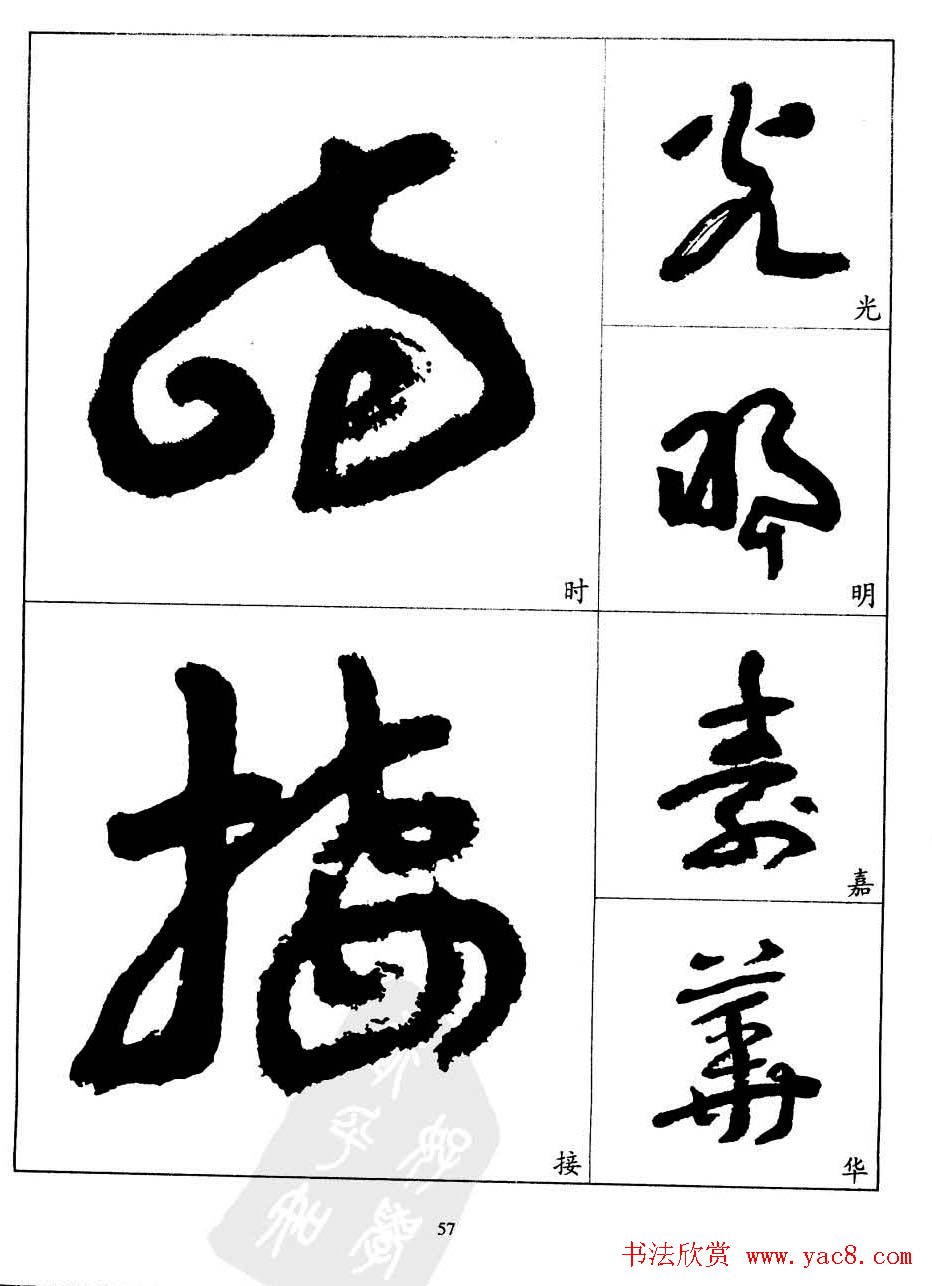 时
光
明
接
嘉
华
57
书法欣赏 www.yac8.com